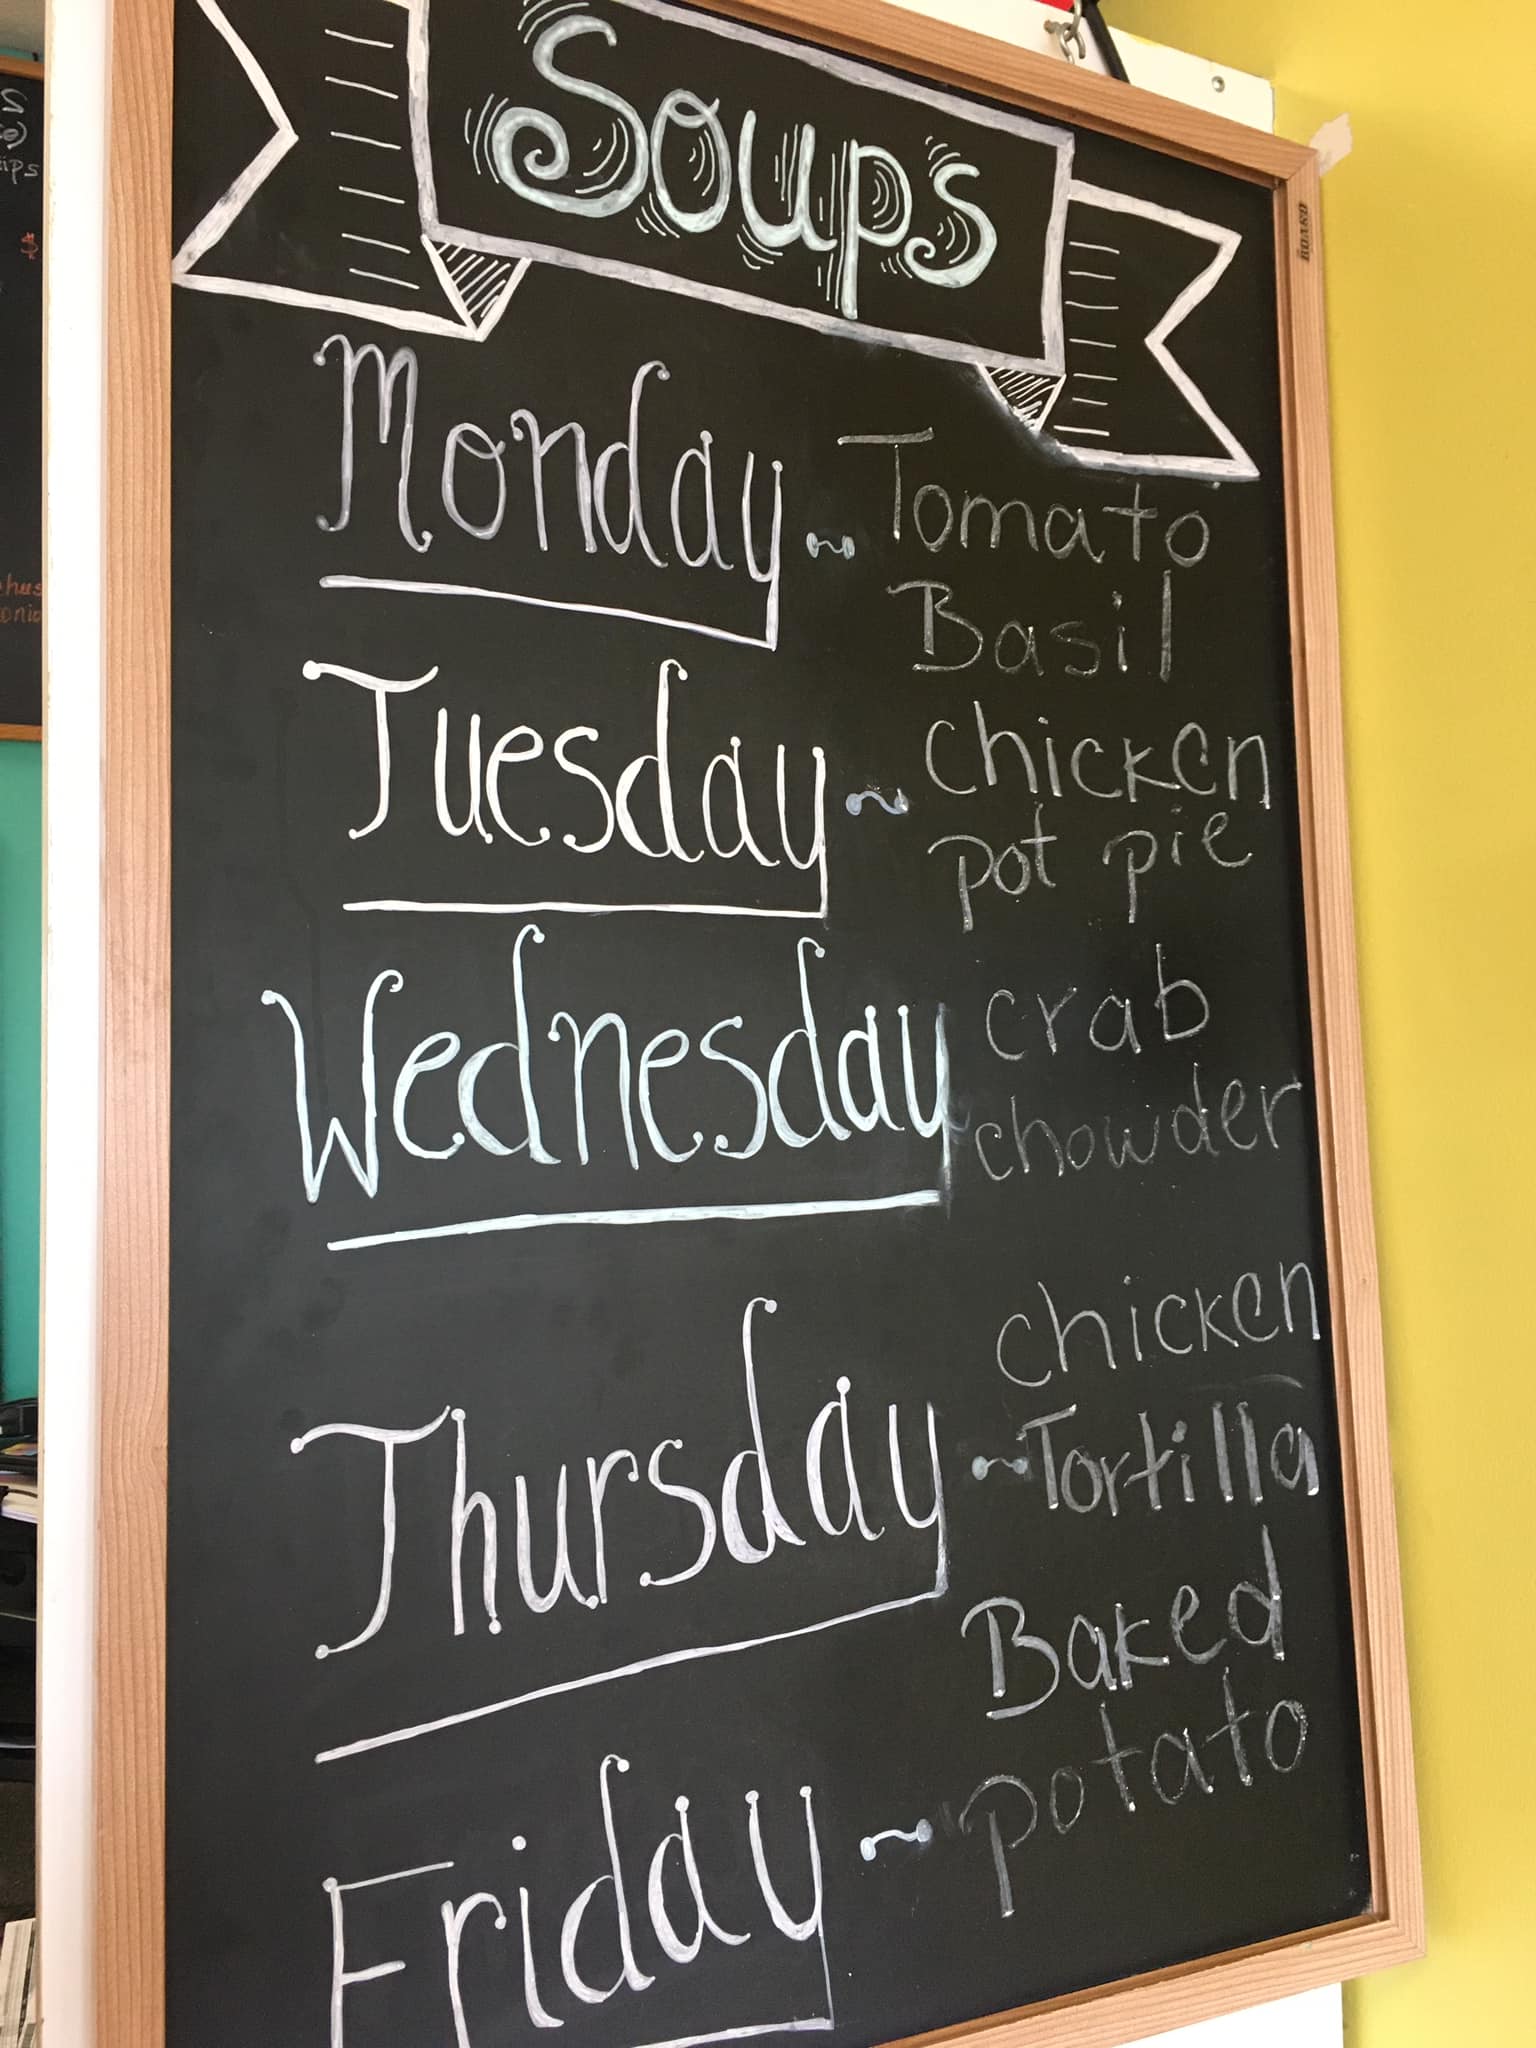 Soups
Monday ~ Tomato
Basil
Tuesday ~ chicken
pot pie
Wednesday crab
chowder
chicken
Thursday ~ Tortilla
Baked
Friday ~ potato
BOARD
$